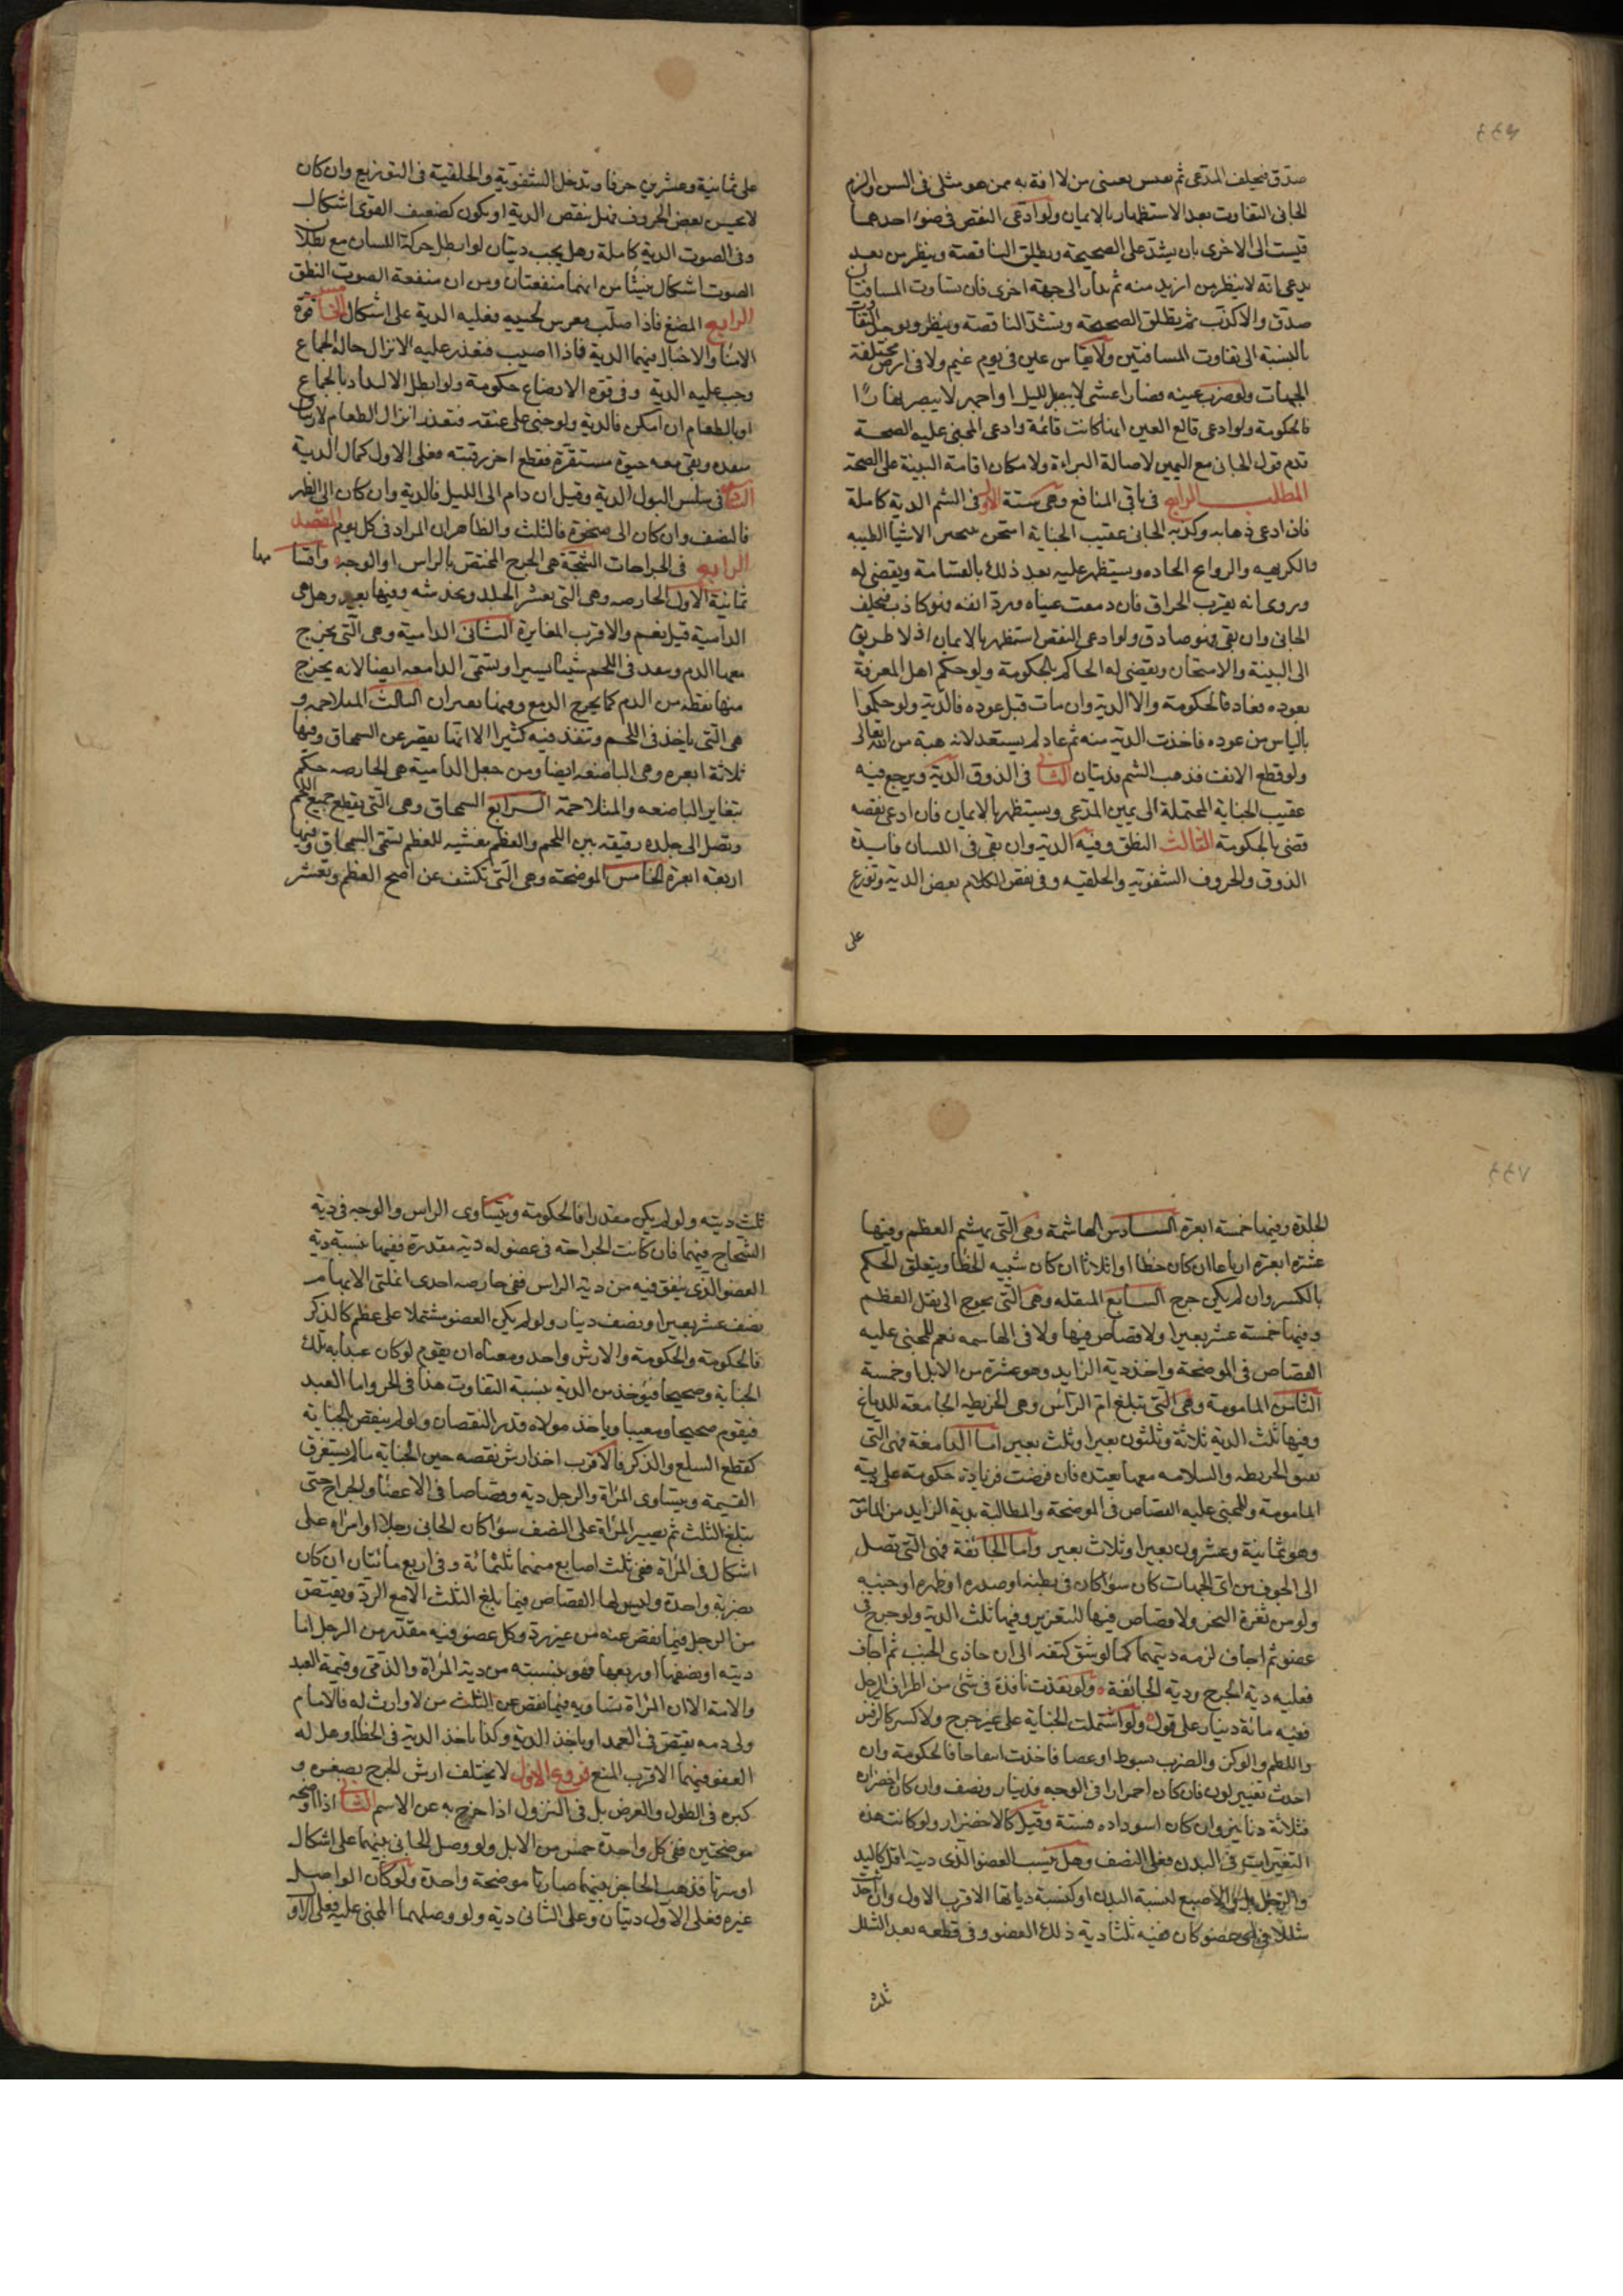 صدق فيحلف المدعى ثم بعينى من لا افة به ممن هو مثلى فى السن والزم
الجانى التفاوت بعد الاستظهار بالايمان ولو ادعى النقص فى ضوء احدهما
قيست الى الاخرى بان يشد على الصحيحة ويطلق الناقصة وينظر من بعد
يدعى انه لا ينظر من ازيد منه ثم يدار الى جهة اخرى فان تساوت المسافتان
صدق والا كذب ثم يطلق الصحيحة ويشد الناقصة وينظر ويوخذ التفاوت
بالنسبة الى تفاوت المسافتين ولا يقاس عين فى يوم غيم ولا فى ارض مختلفة
الجهات ولو ضرب عينه فصار اعشى لا يبصر بالليل او اجهر لا يبصر نهارًا
فالحكومة ولو ادعى قالع العين انها كانت قائمة وادعى المجنى عليه الصحة
قدم قول الجانى مع اليمين لاصالة البراءة ولامكان اقامة البينة على الصحة
المطلب الرابع فى باقى المنافع وهى ستة الاول فى الشم الدية كاملة
فان ادعى ذهابه وكذبه الجانى عقيب الجناية امتحن الاشيا الطيبه
والكريهه والروايح الحاده ويستظهر عليه بعد ذلك بالقسامة ويقضى له
وروى انه يقرب الحراق فان دمعت عيناه ورد انفه فهو كاذب فيحلف
الجانى وان بقى فهو صادق ولو ادعى النقص استظهر بالايمان اذ لا طريق
الى البينة والامتحان ويقضى له الحاكم بالحكومة ولو حكم اهل المعرفة
بعوده فعاد فالحكومة والا الدية وان مات قبل عوده فالدية ولو حكموا
بالياس من عوده فاخذت الدية منه ثم عاد لم يستعد لانه هبة من الله تعالى
ولو قطع الانف فذهب الشم فديتان الثانى فى الذوق الدية ويرجع فيه
عقيب الجناية المحتملة الى يمين المدعى ويستظهر بالايمان فان ادعى نقصه
قضى بالحكومة الثالث النطق وفيه الدية وان بقى فى اللسان فايدة
الذوق والحروف الشفوية والحلقيه وفى نقص الكلام بعض الدية وتوزع
على
على ثمانية وعشرين حرفا وتدخل الشفوية والحلقية فى التوزيع وان كان
لا يحسن بعض الحروف فهل ينقص الدية او يكون كضعيف القوى اشكال
وفى الصوت الدية كاملة وهل يجب ديتان لو ابطل حركة اللسان مع بطلان
الصوت اشكال ينشأ من انهما منفعتان ومن ان منفعة الصوت النطق
الرابع المضغ فاذا صلب مغرس لحييه فعليه الدية على اشكال الخامس قوة
الامناء والاحبال فيهما الدية فاذا اصيب فتعذر عليه الانزال حالة الجماع
وجب عليه الدية وفى قوة الارضاع حكومة ولو ابطل الالتذاذ بالجماع
او بالطعام ان امكن فالدية ولو جنى على عنقه فتعذر انزال الطعام لارتتاق
منفذه وبقى معه حيوة مستقرة فقطع اخر رقبته فعلى الاول كمال الدية
السادس فى سلس البول الدية وقيل ان دام الى الليل فالدية وان كان الى الظهر
فالنصف وان كان الى ضحوة فالثلث والظاهر ان المراد فى كل يوم المقصد
الرابع فى الجراحات الشجة هى الجرح المختص بالراس او الوجه واقسامها
ثمانية الاول الحارصه وهى التى تقشر الجلد وتخدشه وفيها بعير وهل هى
الدامية قيل نعم والاقرب المغايرة الثانى الدامية وهى التى يخرج
معها الدم وتنفذ فى اللحم شيئا يسيرا وتسمى الدامعه ايضا لانه يخرج
منها نقطه من الدم كما يخرج الدمع وفيها بعيران الثالث المتلاحمة و
هى التى ياخذ فى اللحم وتنفذ فيه كثيرا الا انها يقصر عن السمحاق وفيها
ثلاثة ابعره وهى الباضعه ايضا ومن جعل الدامية هى الحارصه حكم
بتغاير الباضعه والمتلاحمة الرابع السمحاق وهى التى يقطع جميع اللحم
وتصل الى جلده رقيقه بين اللحم والعظم مغشيه للعظم تسمى السمحاق وفيها
اربعة ابعرة الخامس الموضحة وهى التى تكشف عن اضح العظم وتقشر
الجلدة وفيها خمسة ابعرة السادس الهاشمة وهى التى يهشم العظم وفيها
عشرة ابعرة ارباعا ان كان خطأ او اثلاثا ان كان شبيه الخطأ ويتعلق الحكم
بالكسر وان لم يكن جرح السابع المنقله وهى التى يحوج الى نقل العظم
وفيها خمسة عشر بعيرا ولا قصاص فيها ولا فى الهاشمه نعم للمجنى عليه
القصاص فى الموضحة واخذ دية الزايد وهو عشرة من الابل او خمسة
الثامن المامومة وهى التى تبلغ ام الراس وهى الخريطه الجامعة للدماغ
وفيها ثلث الدية ثلاثة وثلثون بعيرا وثلث بعير اما الدامغة فهى التى
تفتق الخريطه والسلامه معها بعيده فان فرضت فزيادة حكومة على دية
المامومة وللمجنى عليه القصاص فى الموضحة والمطالبة بدية الزايد من المامومة
وهو ثمانية وعشرون بعيرا وثلاث بعير واما الجائفة فهى التى تصل
الى الجوف من اى الجهات كان سواء كان فى بطنه او صدره او ظهره او جنبيه
ولو من ثغرة النحر ولا قصاص فيها للتغرير وفيها ثلث الدية ولو جرح فى
عضو ثم اجاف لزمه ديتهما كما لو شق كتفه الى ان حاذى الجنب ثم اجاف
فعليه دية الجرح ودية الجائفة ولو نفذت نافذة فى شئ من اطراف الرجل
ففيه مائة دينار على قول ولو اشتملت الجناية على غير جرح ولا كسر كالرفس
واللطم والوكز والضرب بسوط او عصا فاخذت انتفاخا فالحكومة وان
احدث تغيير لون فان كان احمرارا فى الوجه فدينار ونصف وان كان اخضرارا
فثلاثة دنانير وان كان اسودادا فستة وقيل كالاخضرار ولو كانت هذه
التغيرات فى البدن فعلى النصف وهل ينسب العضو الذى ديته اقل كاليد
والرجل بل الاصبع لنسبة البدن او كنسبة دياتها الاقرب الاول وان احدث
شللا فى اى عضو كان ففيه ثلثا دية ذلك العضو وفى قطعه بعد الشلل
ثلث
ثلث ديته ولو لم يكن مقدرا فالحكومة ويتساوى الراس والوجه فى دية
الشجاج فيهما فان كانت الجراحة فى عضو له دية مقدرة ففيها بنسبة دية
العضو الذى يتفق فيه من دية الراس ففى حارصه احدى انملتى الابهام
نصف عشر بعير او نصف دينار ولو لم يكن العضو مشتملا على عظم كالذكر
فالحكومة والحكومة والارش واحد ومعناه ان يقوم لو كان عبدا به تلك
الجناية وصحيحا فيؤخذ من الدية بنسبة التفاوت هذا فى الحر واما العبد
فيقوم صحيحا ومعيبا وياخذ مولاه قدر النقصان ولو لم ينقص بالجناية
كقطع السلع والذكر فالاقرب اخذ ارش نقصه حين الجناية ما لم يستغرق
القيمة ويتساوى المرأة والرجل دية وقصاصا فى الاعضاء والجراح حتى
يبلغ الثلث ثم يصير المرأة على النصف سواء كان الجانى رجلا او امرأه على
اشكال فى المرأة ففى ثلث اصابع منهما ثلثمائة وفى اربع مائتان ان كان
بضربة واحدة وليس لها القصاص فيما يبلغ الثلث الا مع الرد ويقتص
من الرجل فيما نقص عنه من غير رد وكل عضو فيه مقدر من الرجل اما
ديته او نصفها او ربعها فهو بنسبته من دية المرأة والذمى وقيمة العبد
والامة الا ان المرأة تساويه فيما نقص عن الثلث من لا وارث له فالامام
ولى دمه يقتص فى العمد او ياخذ الدية وكذا ياخذ الدية فى الخطأ وهل له
العفو فيهما الاقرب المنع فروع الاول لا يختلف ارش الجرح بصغره و
كبره فى الطول والعرض بل فى النزول اذا خرج به عن الاسم الثانى اذا اوضحه
موضحتين ففى كل واحدة خمس من الابل ولو وصل الجانى بينهما على اشكال
او سرتا فذهب الحاجز بينهما صارتا موضحة واحدة ولو كان الواصل
غيره فعلى الاول ديتان وعلى الثانى دية ولو وصلهما المجنى عليه فعلى الاول